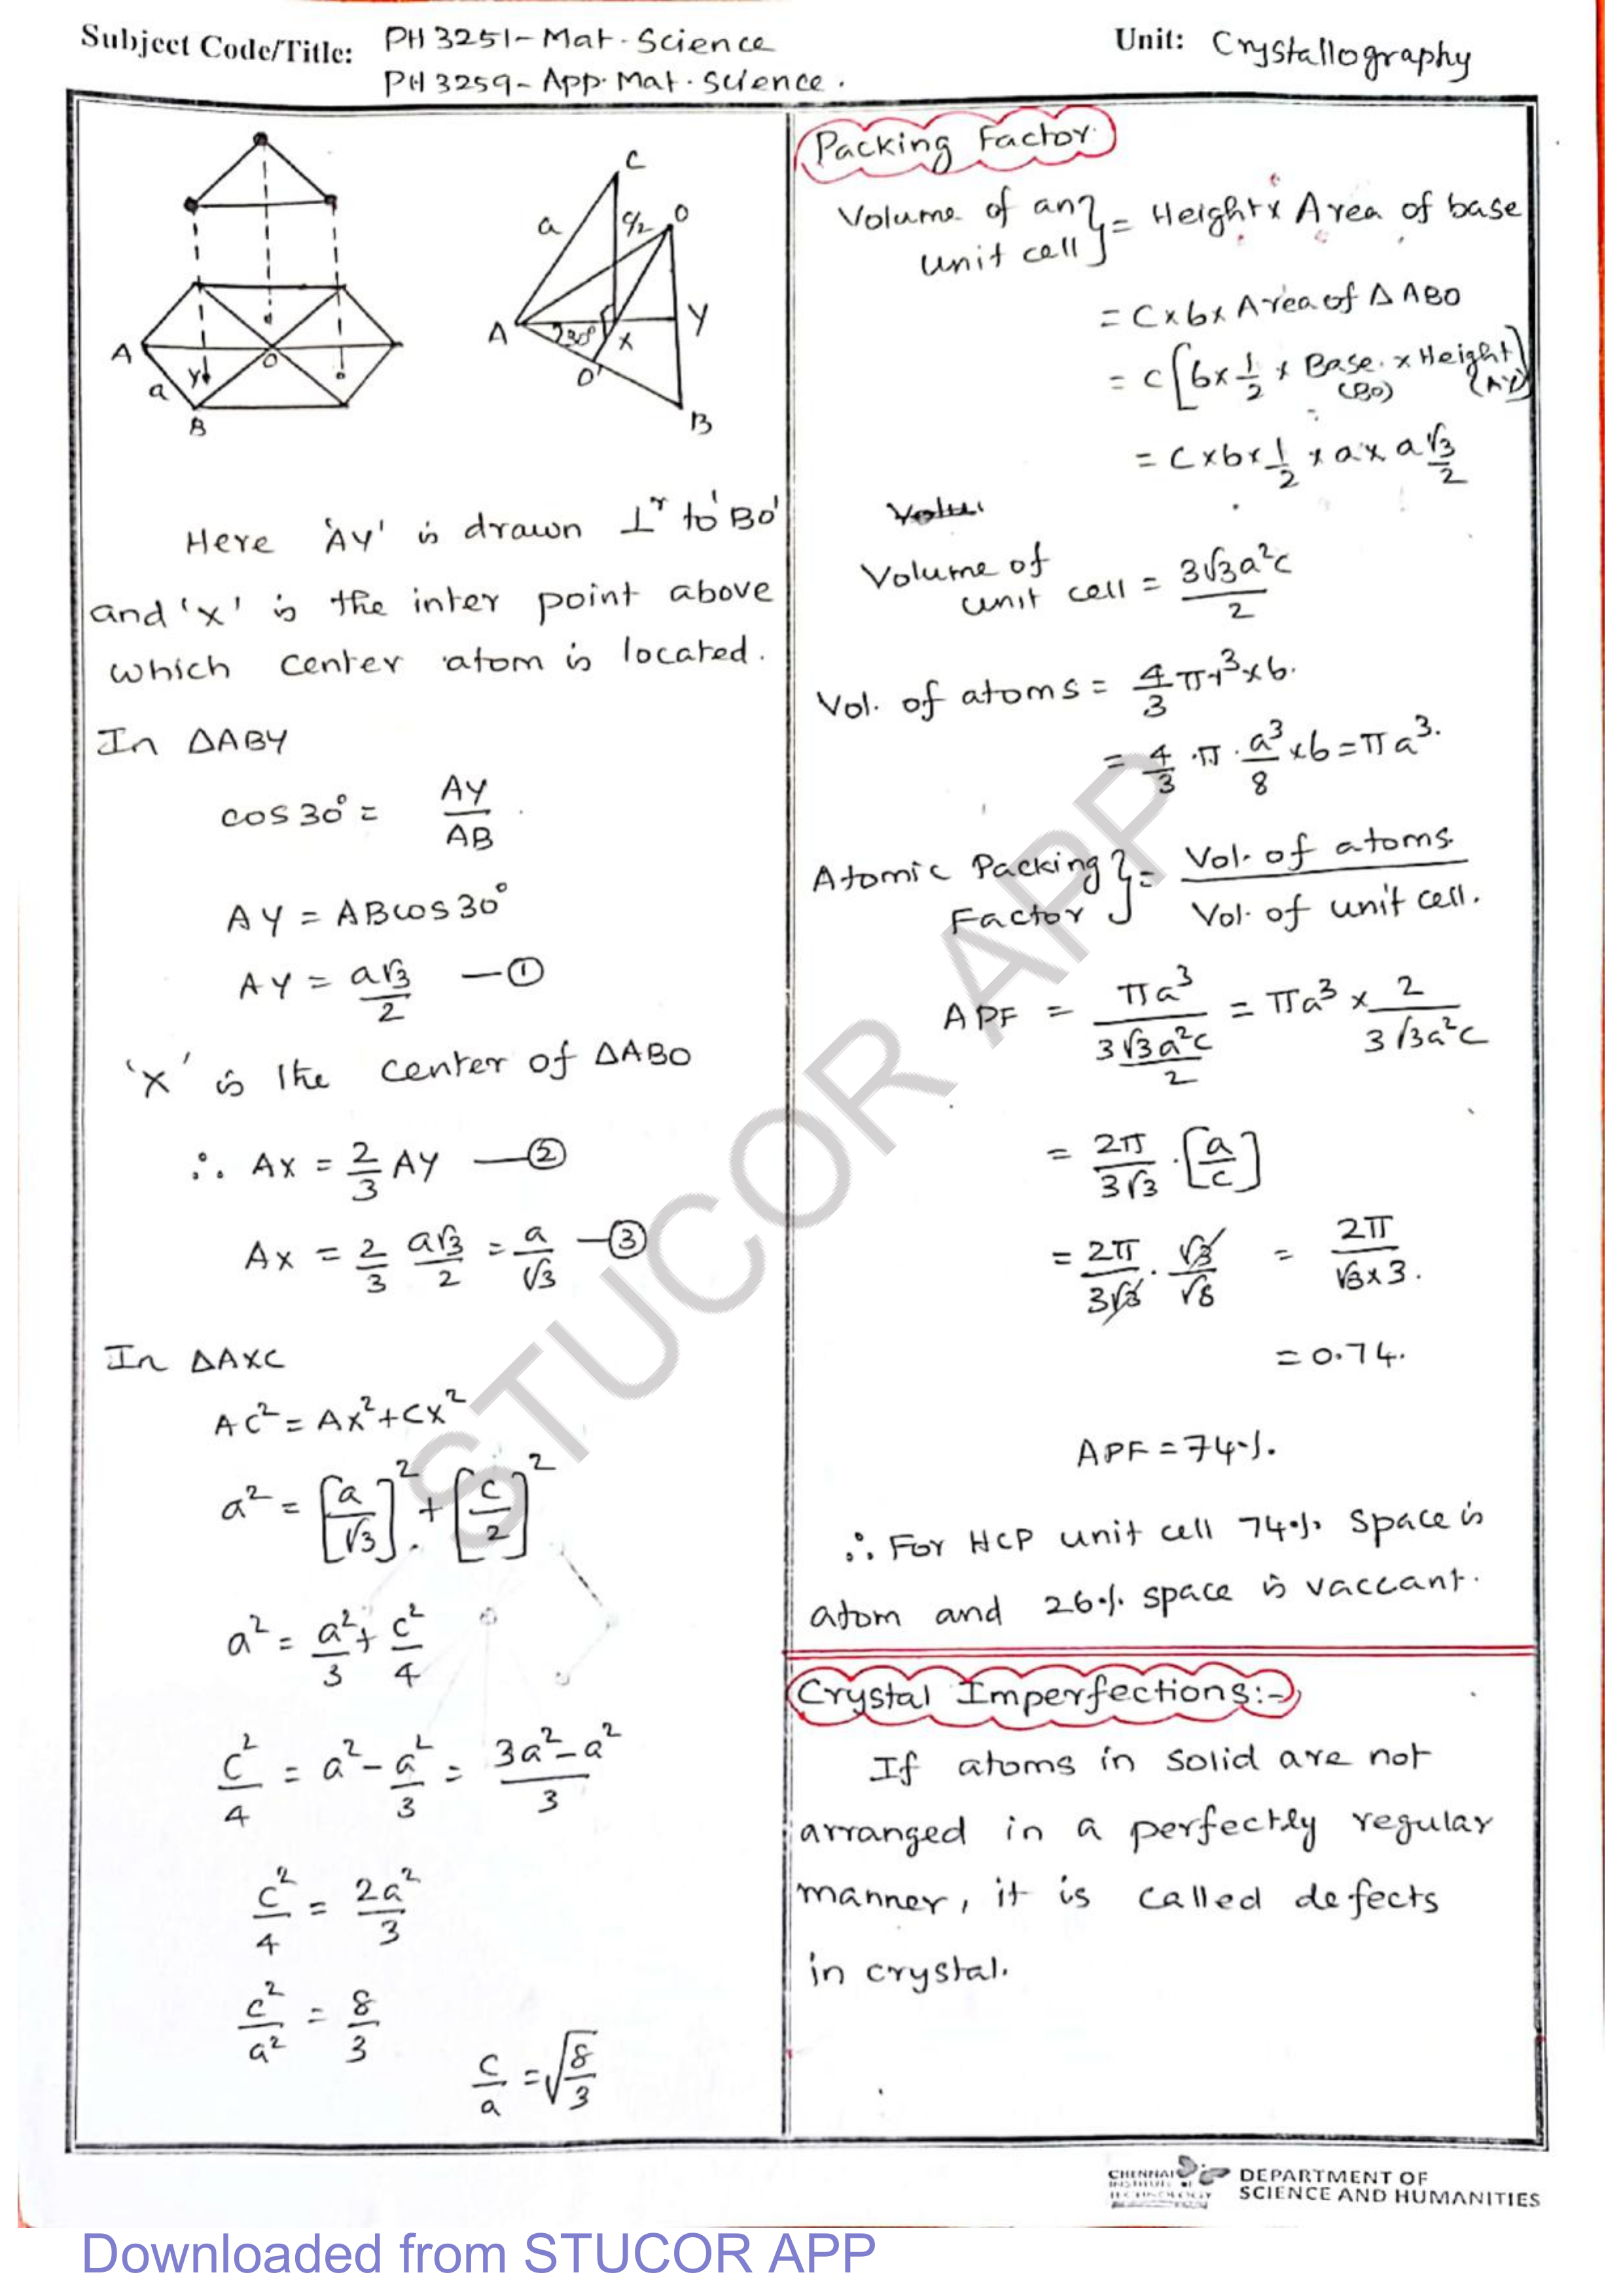 Subject Code/Title: PH 3251- Mat. Science
PH 3259- App. Mat. Science.
Unit: Crystallography
C
a
c/2
O
A
30°
X
Y
O'
B
A
a
Y
O
B
Here 'AY' is drawn ⊥r to 'BO'
and 'x' is the inter point above
which center atom is located.
In ΔABY
cos 30° = AY/AB
AY = AB cos 30°
AY = a√3/2 — ①
'x' is the center of ΔABO
∴ AX = 2/3 AY — ②
AX = 2/3 a√3/2 = a/√3 — ③
In ΔAXC
AC² = AX² + CX²
a² = [a/√3]² + [c/2]²
a² = a²/3 + c²/4
c²/4 = a² - a²/3 = 3a² - a²/3
c²/4 = 2a²/3
c²/a² = 8/3
c/a = √8/3
Packing Factor
Volume of any
unit cell } = Height x Area of base
= C x 6 x Area of Δ ABO
= c [6 x 1/2 x Base x Height]
(BO) (AY)
= C x 6 x 1/2 x a x a√3/2
Volu
Volume of
unit cell = 3√3a²c/2
Vol. of atoms = 4/3 πr³ x 6.
= 4/3 · π · a³/8 x 6 = πa³.
Atomic Packing
Factor } = Vol. of atoms/Vol. of unit cell.
APF = πa³/3√3a²c/2 = πa³ x 2/3√3a²c
= 2π/3√3 · [a/c]
= 2π/3√3 · √3/√8 = 2π/√8 x 3.
= 0.74.
APF = 74%.
∴ For HCP unit cell 74% space is
atom and 26% space is vaccant.
Crystal Imperfections:-
If atoms in solid are not
arranged in a perfectly regular
manner, it is called defects
in crystal.
STUCOR APP
CHENNAI
INSTITUTE OF
TECHNOLOGY
DEPARTMENT OF
SCIENCE AND HUMANITIES
Downloaded from STUCOR APP